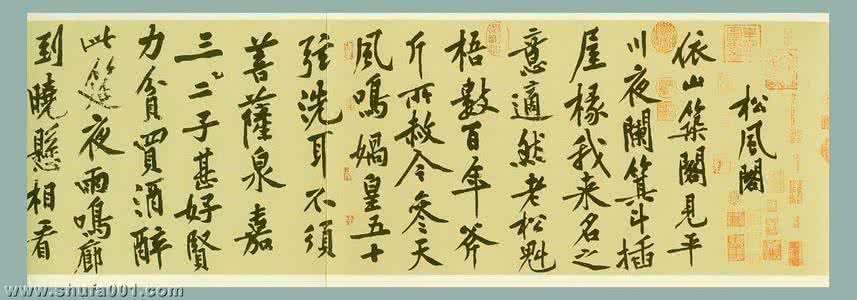 松風閣
依山築閣見平
川夜闌箕斗插
屋椽我来名之
意適然老松魁
梧數百年斧
斤所赦今參天
風鳴媧皇五十
弦洗耳不須
菩薩泉嘉
三二子甚好賢
力貧買酒醉
此筵夜雨鳴廊
到曉懸相看
www.shufa001.com